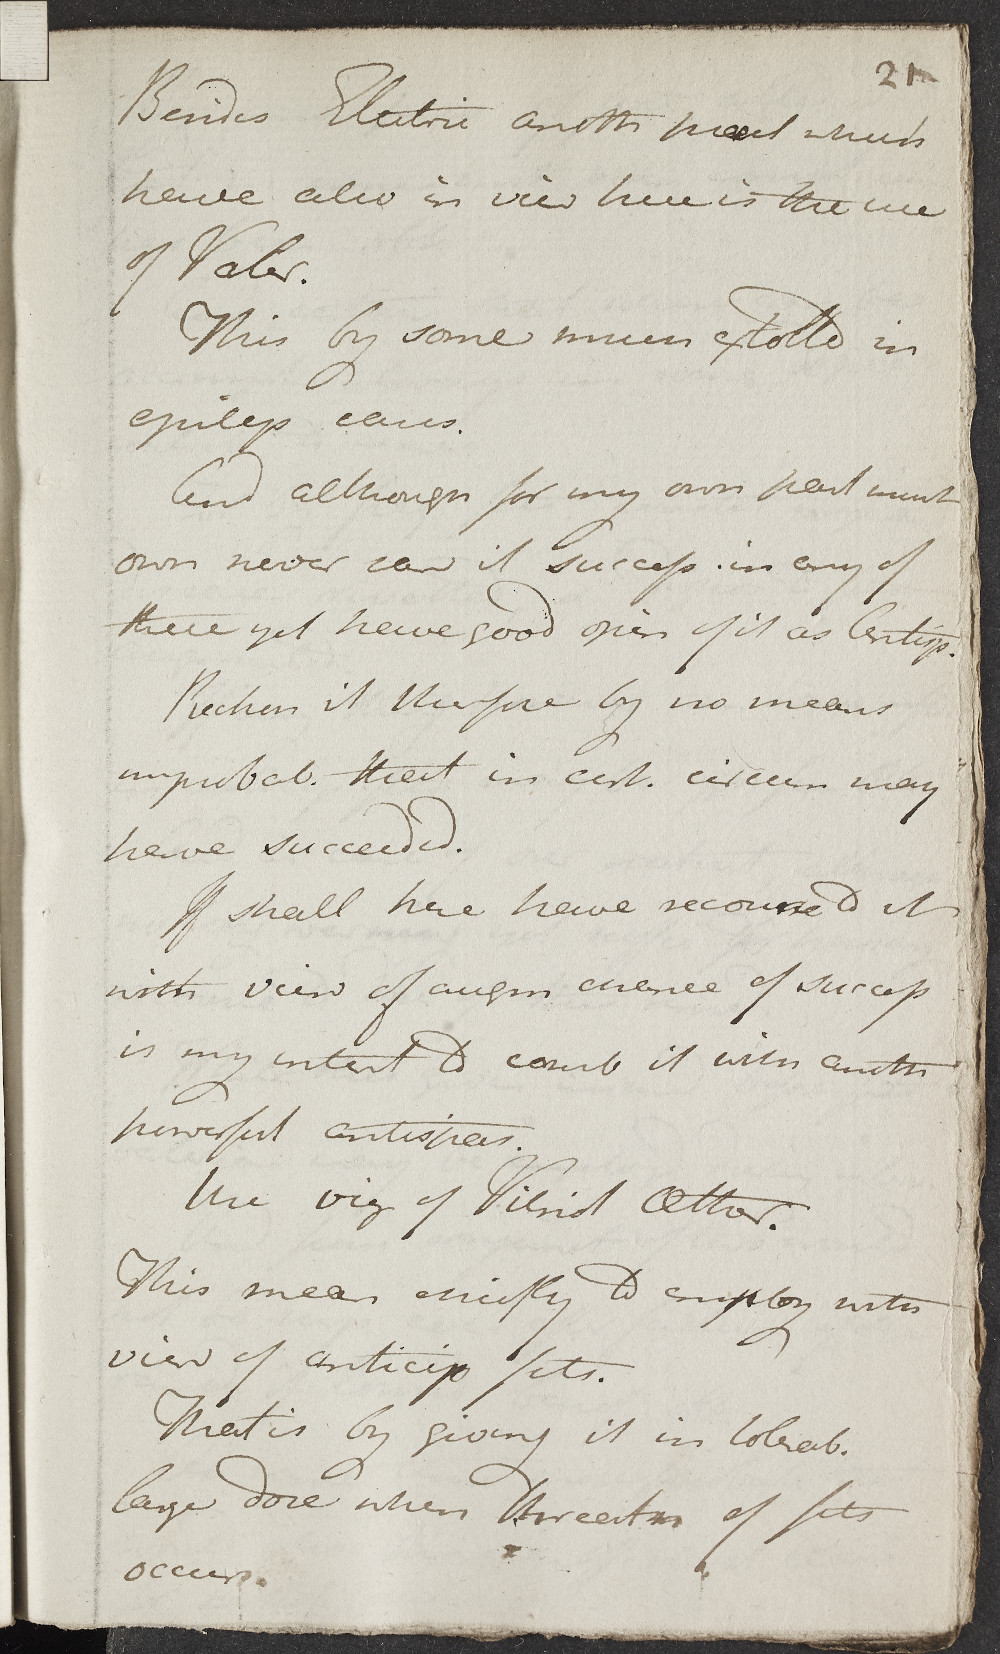 21
Besides Electric anoth pract which
have also in view here is the use
of Valer.
This by some much extolld in
epilep cases.
And although for my own part must
own never saw it success in any of
these yet have good opin of it as Antisp.
Reckon it therfore by no means
improbab. that in cert. circum may
have succeeded.
If shall here have recourse to it
with view of augm chance of success
is my intent to comb it with anoth
powerful antispas.
Use viz of Vitriol Æther.
This mean chiefly to employ with
view of anticip fits.
That is by giving it in tolerab.
large dose when threatn of fits
occurs.